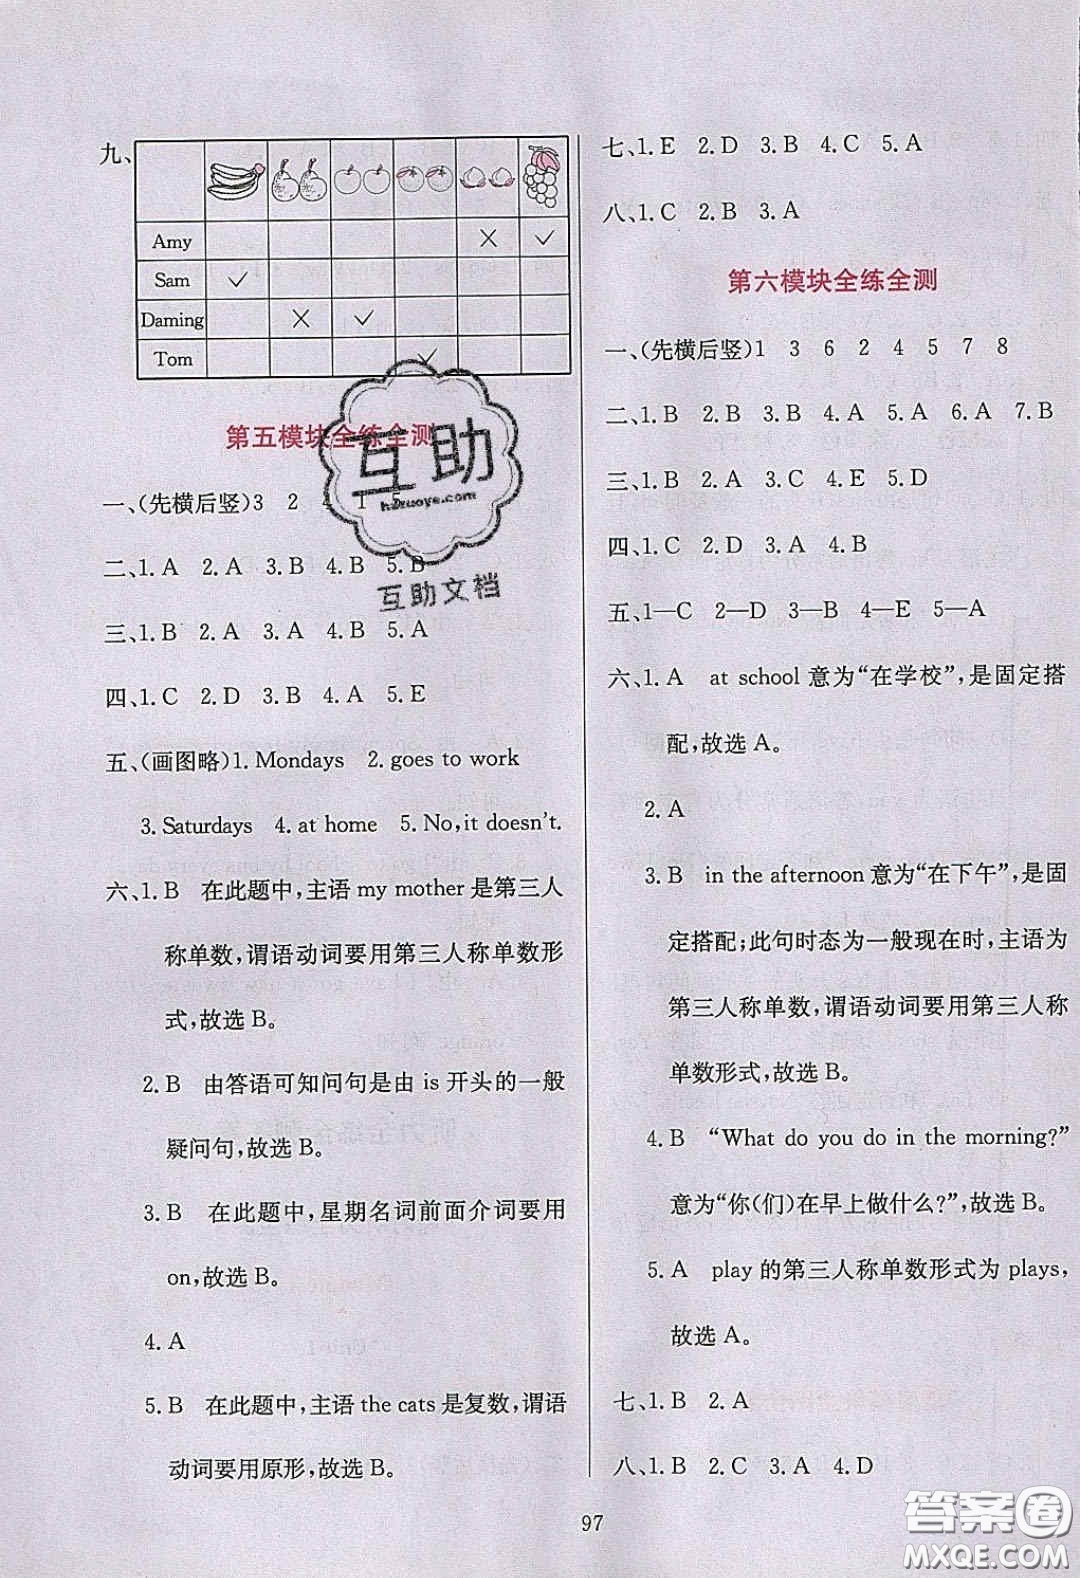 九、
Amy × ✓
Sam ✓
Daming × ✓
Tom ✓
第五模块全练全测
一、(先横后竖)3 2 4 1 5
二、1. A 2. A 3. B 4. B 5. B
三、1. B 2. A 3. A 4. B 5. A
四、1. C 2. D 3. B 4. A 5. E
五、(画图略)1. Mondays 2. goes to work
3. Saturdays 4. at home 5. No, it doesn't.
六、1. B 在此题中,主语 my mother 是第三人
称单数,谓语动词要用第三人称单数形
式,故选 B。
2. B 由答语可知问句是由 is 开头的一般
疑问句,故选 B。
3. B 在此题中,星期名词前面介词要用
on,故选 B。
4. A
5. B 在此题中,主语 the cats 是复数,谓语
动词要用原形,故选 B。
七、1. E 2. D 3. B 4. C 5. A
八、1. C 2. B 3. A
第六模块全练全测
一、(先横后竖)1 3 6 2 4 5 7 8
二、1. B 2. B 3. B 4. A 5. A 6. A 7. B
三、1. B 2. A 3. C 4. E 5. D
四、1. C 2. D 3. A 4. B
五、1—C 2—D 3—B 4—E 5—A
六、1. A at school 意为“在学校”,是固定搭
配,故选 A。
2. A
3. B in the afternoon 意为“在下午”,是固
定搭配;此句时态为一般现在时,主语为
第三人称单数,谓语动词要用第三人称
单数形式,故选 B。
4. B “What do you do in the morning?”
意为“你(们)在早上做什么?”,故选 B。
5. A play 的第三人称单数形式为 plays,
故选 A。
七、1. B 2. A
八、1. B 2. C 3. A 4. D
97
互助
huzuoye.com
互助文档
答案圈
MXQE.COM